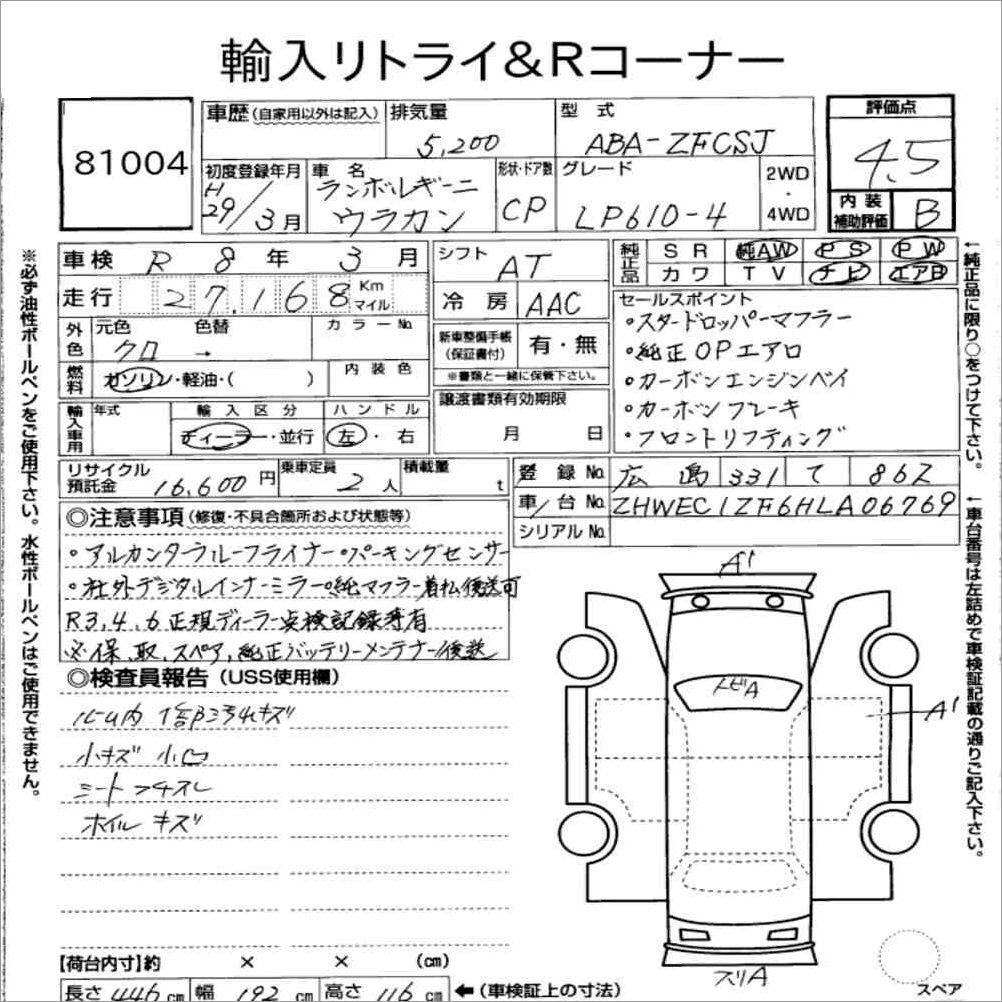 輸入リトライ&Rコーナー
81004
車歴 (自家用以外は記入) 排気量 5,200 型式 ABA-ZFCSJ
評価点 4.5
初度登録年月 H29/3月 車名 ランボルギーニ ウラカン 形状・ドア数 CP グレード LP610-4 2WD・4WD
内装補助評価 B
車検 R 8 年 3 月 シフト AT
純正品 SR 純AW PS PW
カワ TV ナビ エアB
走行 27,168 Km マイル 冷房 AAC
外色 元色 クロ 色替 → カラーNo.
新車整備手帳 (保証書付) 有・無
※書類と一緒に保管下さい。
燃料 ガソリン・軽油・( ) 内装色
譲渡書類有効期限 月 日
輸入車用 年式 輸入区分 ディーラー・並行 ハンドル 左・右
セールスポイント
・スタードロッパーマフラー
・純正OPエアロ
・カーボンエンジンベイ
・カーボンブレーキ
・フロントリフティング
リサイクル預託金 16,600円 乗車定員 2人 積載量 t
登録No. 広島 331 て 862
車/台No. ZHWEC1ZF6HLA06769
シリアルNo.
◎注意事項 (修復・不具合箇所および状態等)
・アルカンターラルーフライナー・パーキングセンサー
・社外デジタルインナーミラー・純マフラー着払後送可
R3,4,6正規ディーラー点検記録簿有
※保、取、スペア、純正バッテリーメンテナー後送
◎検査員報告 (USS使用欄)
小キズ 小凹
シートフチスレ
ホイルキズ
A1
トビA
A1
スリA
スペア
【荷台内寸】約 × × (cm)
長さ 446cm 幅 192cm 高さ 116cm ←(車検証上の寸法)
※必ず油性ボールペンをご使用下さい。水性ボールペンはご使用できません。
←純正品に限り○をつけて下さい。
←車台番号は左詰めで車検証記載の通りご記入下さい。